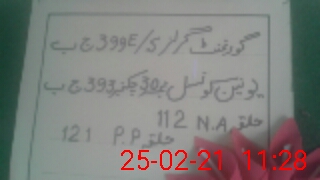 گورنمنٹ گرلز E/S 399 ج ب
یونین کونسل نمبر 30 چکنمبر 393 ج ب
حلقہ N.A 112
حلقہ P.P 121
25-02-21 11:28